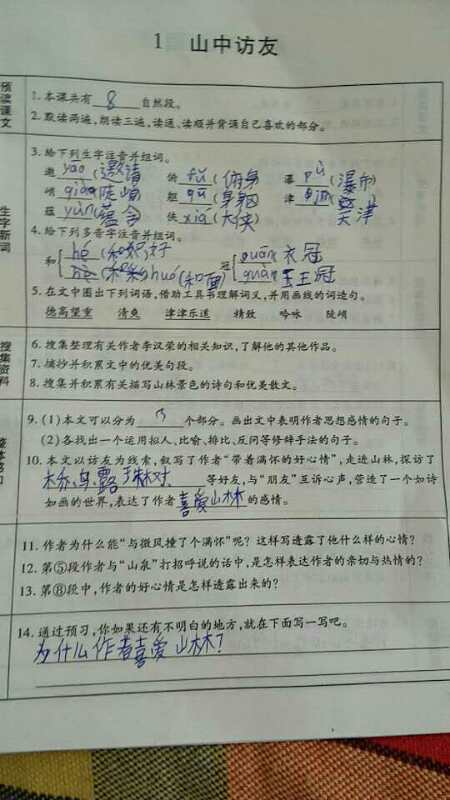 1 山中访友
预读课文
1. 本课共有 8 自然段。
2. 默读两遍,朗读三遍,读通、读顺并背诵自己喜欢的部分。
生字新词
3. 给下列生字注音并组词。
邀 yāo (邀请 俯 fǔ (俯身 瀑 pù (瀑布
峭 qiào (陡峭 躯 qū (身躯 津 jīn (天津
蕴 yùn (蕴含 侠 xiá (大侠
4. 给下列多音字注音并组词。
和 hé (和好 冠 guān 衣冠
huó (和面 guàn 王冠
5. 在文中圈出下列词语,借助工具书理解词义,并用画线的词造句。
德高望重 清爽 津津乐道 精致 吟咏 陡峭
搜集资料
6. 搜集整理有关作者李汉荣的相关知识,了解他的其他作品。
7. 摘抄并积累文中的优美句段。
8. 搜集并积累有关描写山林景色的诗句和优美散文。
9. (1)本文可以分为 3 个部分。画出文中表明作者思想感情的句子。
(2)各找出一个运用拟人、比喻、排比、反问等修辞手法的句子。
10. 本文以访友为线索,叙写了作者“带着满怀的好心情”,走进山林,探访了
桥、鸟、露 树 等好友,与“朋友”互诉心声,营造了一个如诗
如画的世界,表达了作者 喜爱山林 的感情。
11. 作者为什么能“与微风撞了个满怀”呢?这样写透露了他什么样的心情?
12. 第⑤段作者与“山泉”打招呼说的话中,是怎样表达作者的亲切与热情的?
13. 第⑧段中,作者的好心情是怎样透露出来的?
14. 通过预习,你如果还有不明白的地方,就在下面写一写吧。
为什么作者喜爱山林?